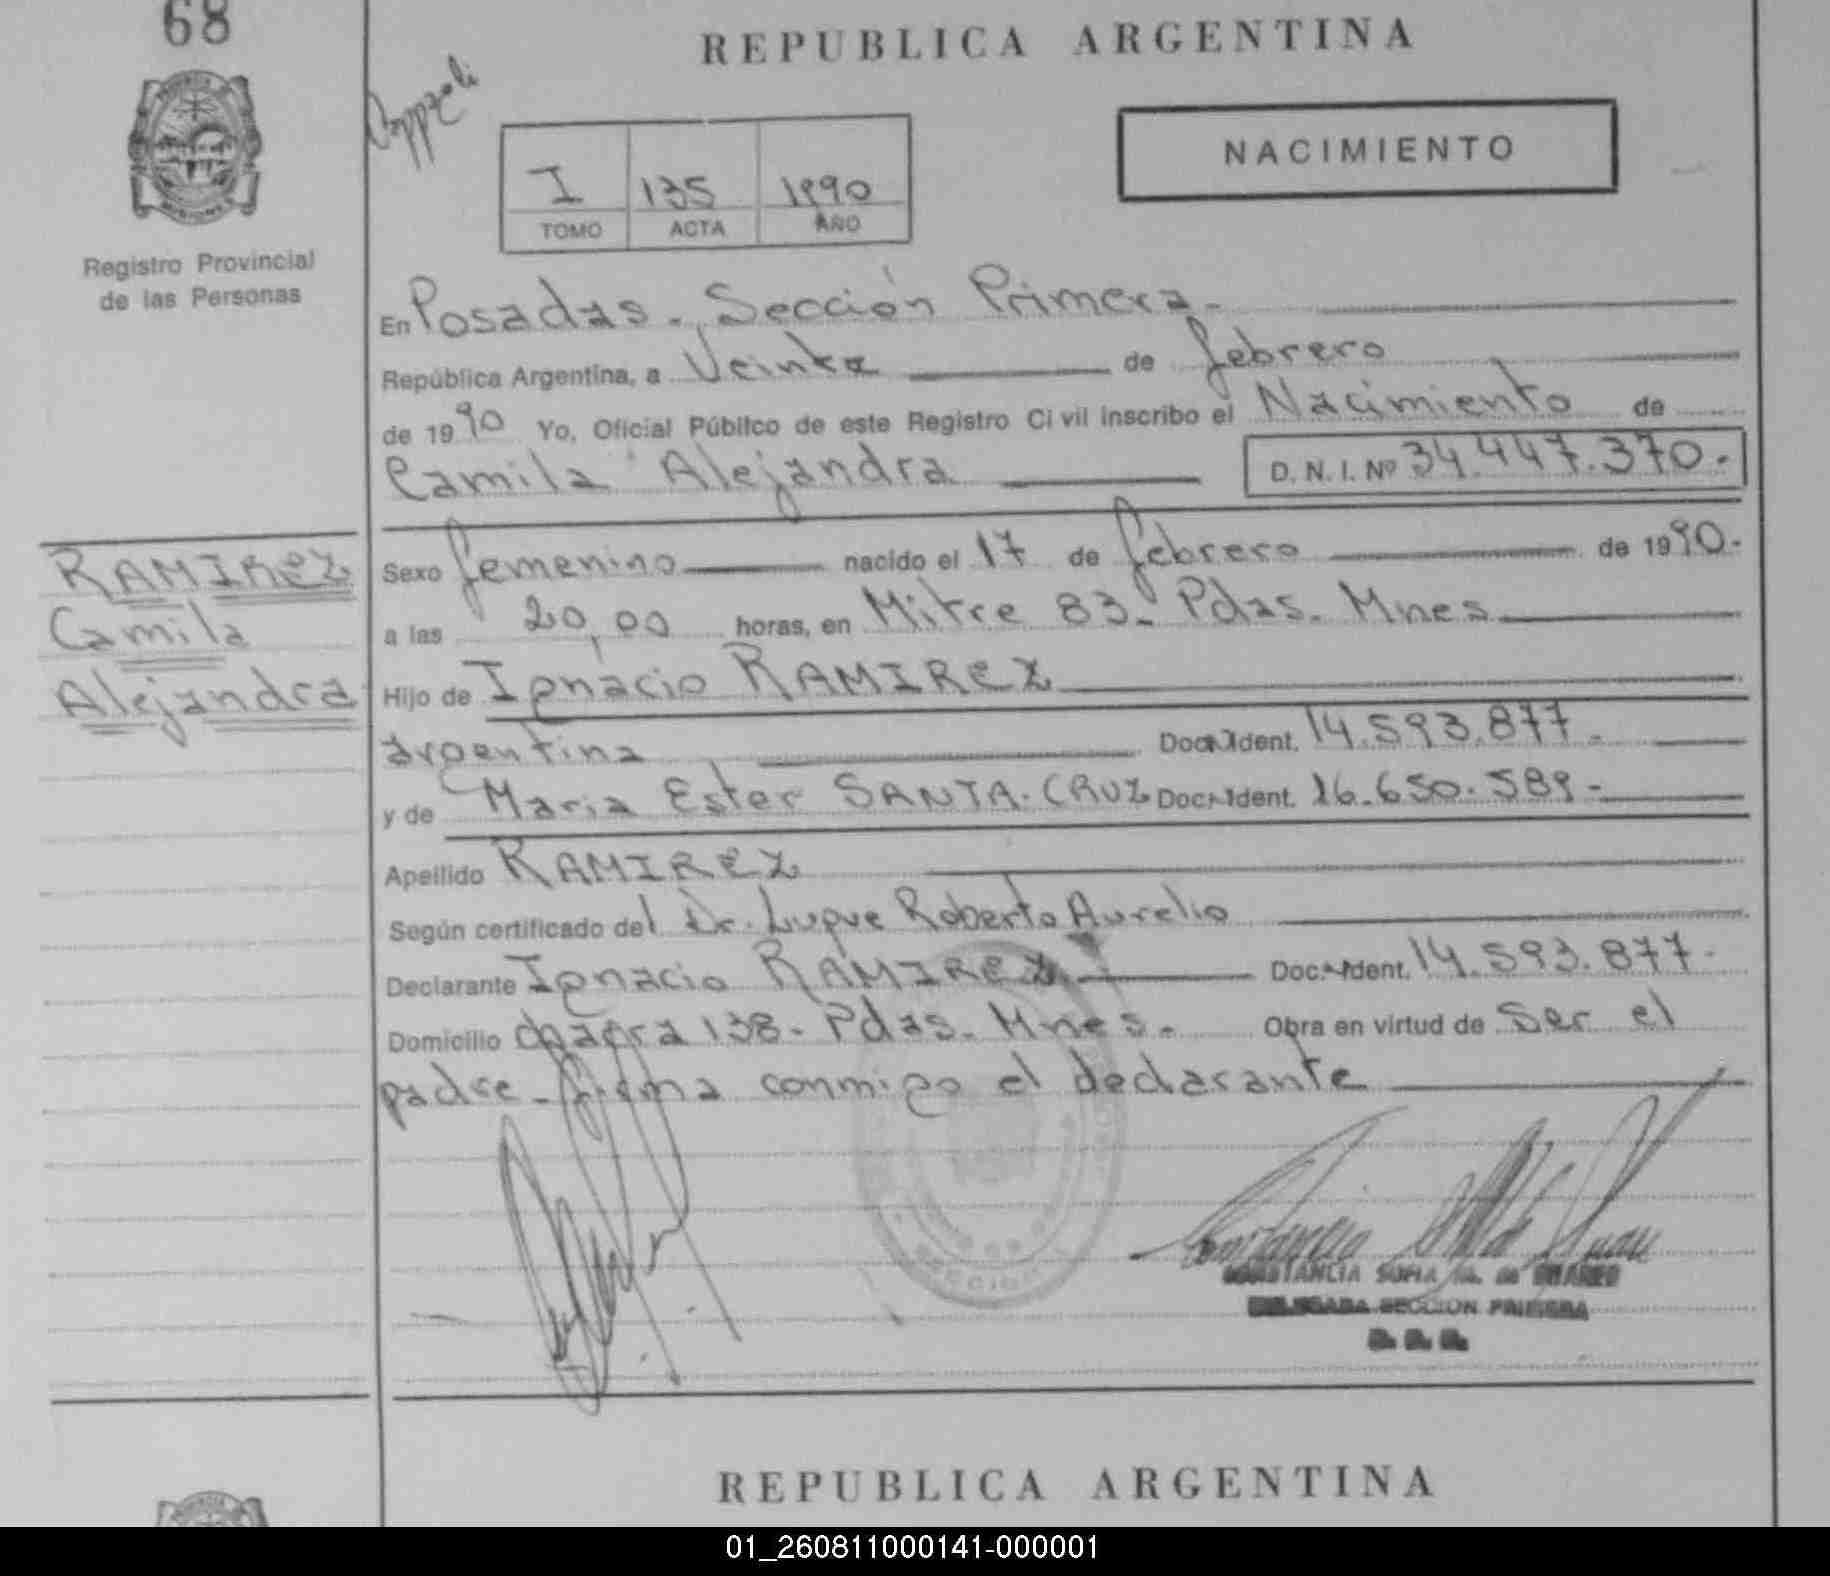 68
REPUBLICA ARGENTINA
NACIMIENTO
I 135 1990
TOMO ACTA AÑO
Registro Provincial
de las Personas
En Posadas. Sección Primera.
República Argentina, a Veinte de febrero
de 1990 Yo, Oficial Público de este Registro Civil inscribo el Nacimiento de
Camila Alejandra D.N.I. Nº 34.447.370.
RAMIREZ
Camila
Alejandra
Sexo femenino nacido el 17 de febrero de 1990.
a las 20,00 horas, en Mitre 83. Pdas. Mnes.
Hijo de Ignacio RAMIREZ
argentina Doc. Ident. 14.593.877.
y de Maria Ester SANTA-CRUZ Doc. Ident. 16.650.589-
Apellido RAMIREZ
Según certificado del Dr. Luque Roberto Aurelio
Declarante Ignacio RAMIREZ Doc. Ident. 14.593.877.
Domicilio chacra 138. Pdas. Mnes. Obra en virtud de Ser el
padre. firma conmigo el declarante
CONSTANCIA SOFIA DE SUAREZ
DELEGADA SECCION PRIMERA
REPUBLICA ARGENTINA
01_260811000141-000001